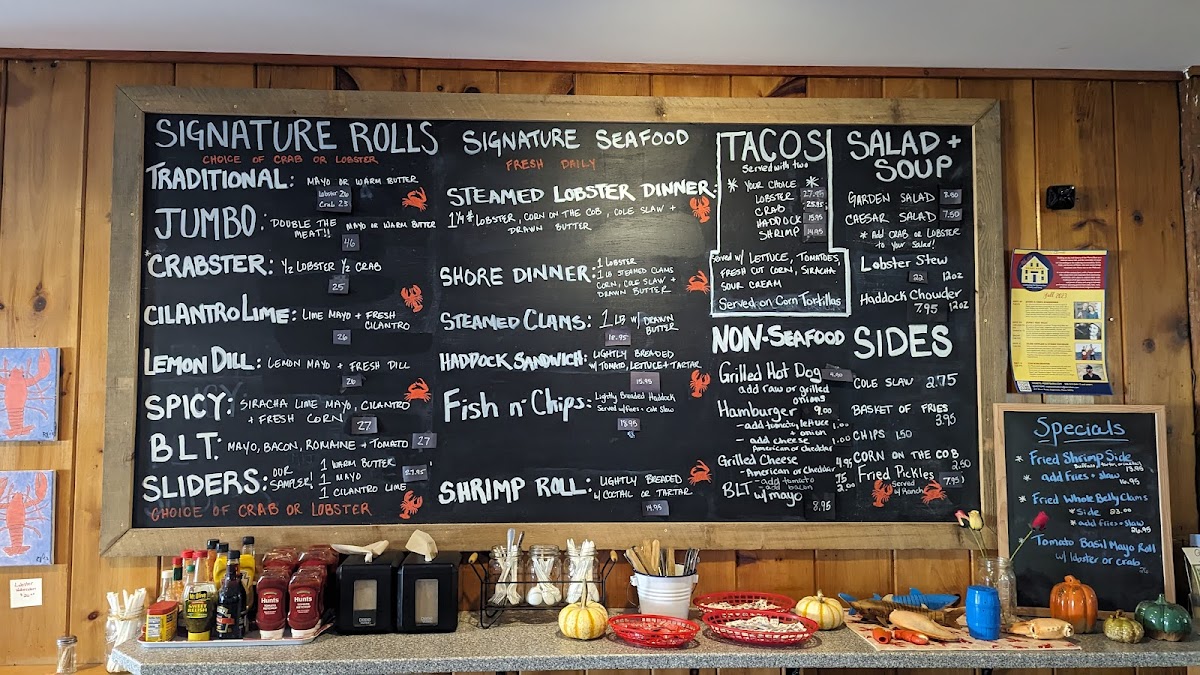 SIGNATURE ROLLS
CHOICE OF CRAB OR LOBSTER
TRADITIONAL: MAYO OR WARM BUTTER
Lobster 26
Crab 23
JUMBO: DOUBLE THE MEAT!! MAYO OR WARM BUTTER
46
*CRABSTER: 1/2 LOBSTER 1/2 CRAB
25
CILANTRO LIME: LIME MAYO + FRESH
CILANTRO
26
LEMON DILL: LEMON MAYO + FRESH DILL
26
SPICY: SIRACHA LIME MAYO, CILANTRO
+ FRESH CORN 27
BLT: MAYO, BACON, ROMAINE + TOMATO 27
SLIDERS: OUR SAMPLE! 1 WARM BUTTER
1 MAYO 27.95
1 CILANTRO LIME
CHOICE OF CRAB OR LOBSTER
SIGNATURE SEAFOOD
FRESH DAILY
STEAMED LOBSTER DINNER:
1 1/4 # LOBSTER, CORN ON THE COB, COLE SLAW +
DRAWN BUTTER
SHORE DINNER: 1 LOBSTER
1 LB STEAMED CLAMS
CORN, COLE SLAW +
DRAWN BUTTER
STEAMED CLAMS: 1 LB W/ DRAWN
BUTTER
18.95
HADDOCK SANDWICH: LIGHTLY BREADED
W/ TOMATO, LETTUCE + TARTAR
15.95
Fish n' Chips: Lightly Breaded Haddock
Served w/ Fries + Cole Slaw
18.95
SHRIMP ROLL: LIGHTLY BREADED
W/ COCTAIL OR TARTAR
14.95
TACOS
Served with two
* YOUR CHOICE *
LOBSTER 27.95
CRAB 25.95
HADDOCK 15.95
SHRIMP 14.95
Served w/ LETTUCE, TOMATOES,
FRESH CUT CORN, SIRACHA
SOUR CREAM
Served on Corn Tortillas
NON-SEAFOOD
Grilled Hot Dog
add raw or grilled
onions
Hamburger 9.00
- add tomato, lettuce
+ onion 1.00
- add cheese 1.00
American or cheddar
Grilled Cheese
- American or Cheddar
- add tomato
- add bacon 2.00
BLT w/ mayo 8.95
SALAD +
SOUP
GARDEN SALAD
CAESAR SALAD 7.50
* Add CRAB or LOBSTER
to your Salad!
Lobster Stew
22 12oz
Haddock Chowder
7.95 12oz
SIDES
COLE SLAW 2.75
BASKET OF FRIES
3.95
CHIPS 1.50
CORN ON THE COB
2.50
Fried Pickles 7.95
Served
w/ Ranch
Specials
* Fried Shrimp Side
* add fries + slaw
16.95
* Fried Whole Belly Clams
* Side 23.00
* add fries + slaw
26.95
* Tomato Basil Mayo Roll
w/ lobster or crab
Fall 2023
Hunts
Hunts